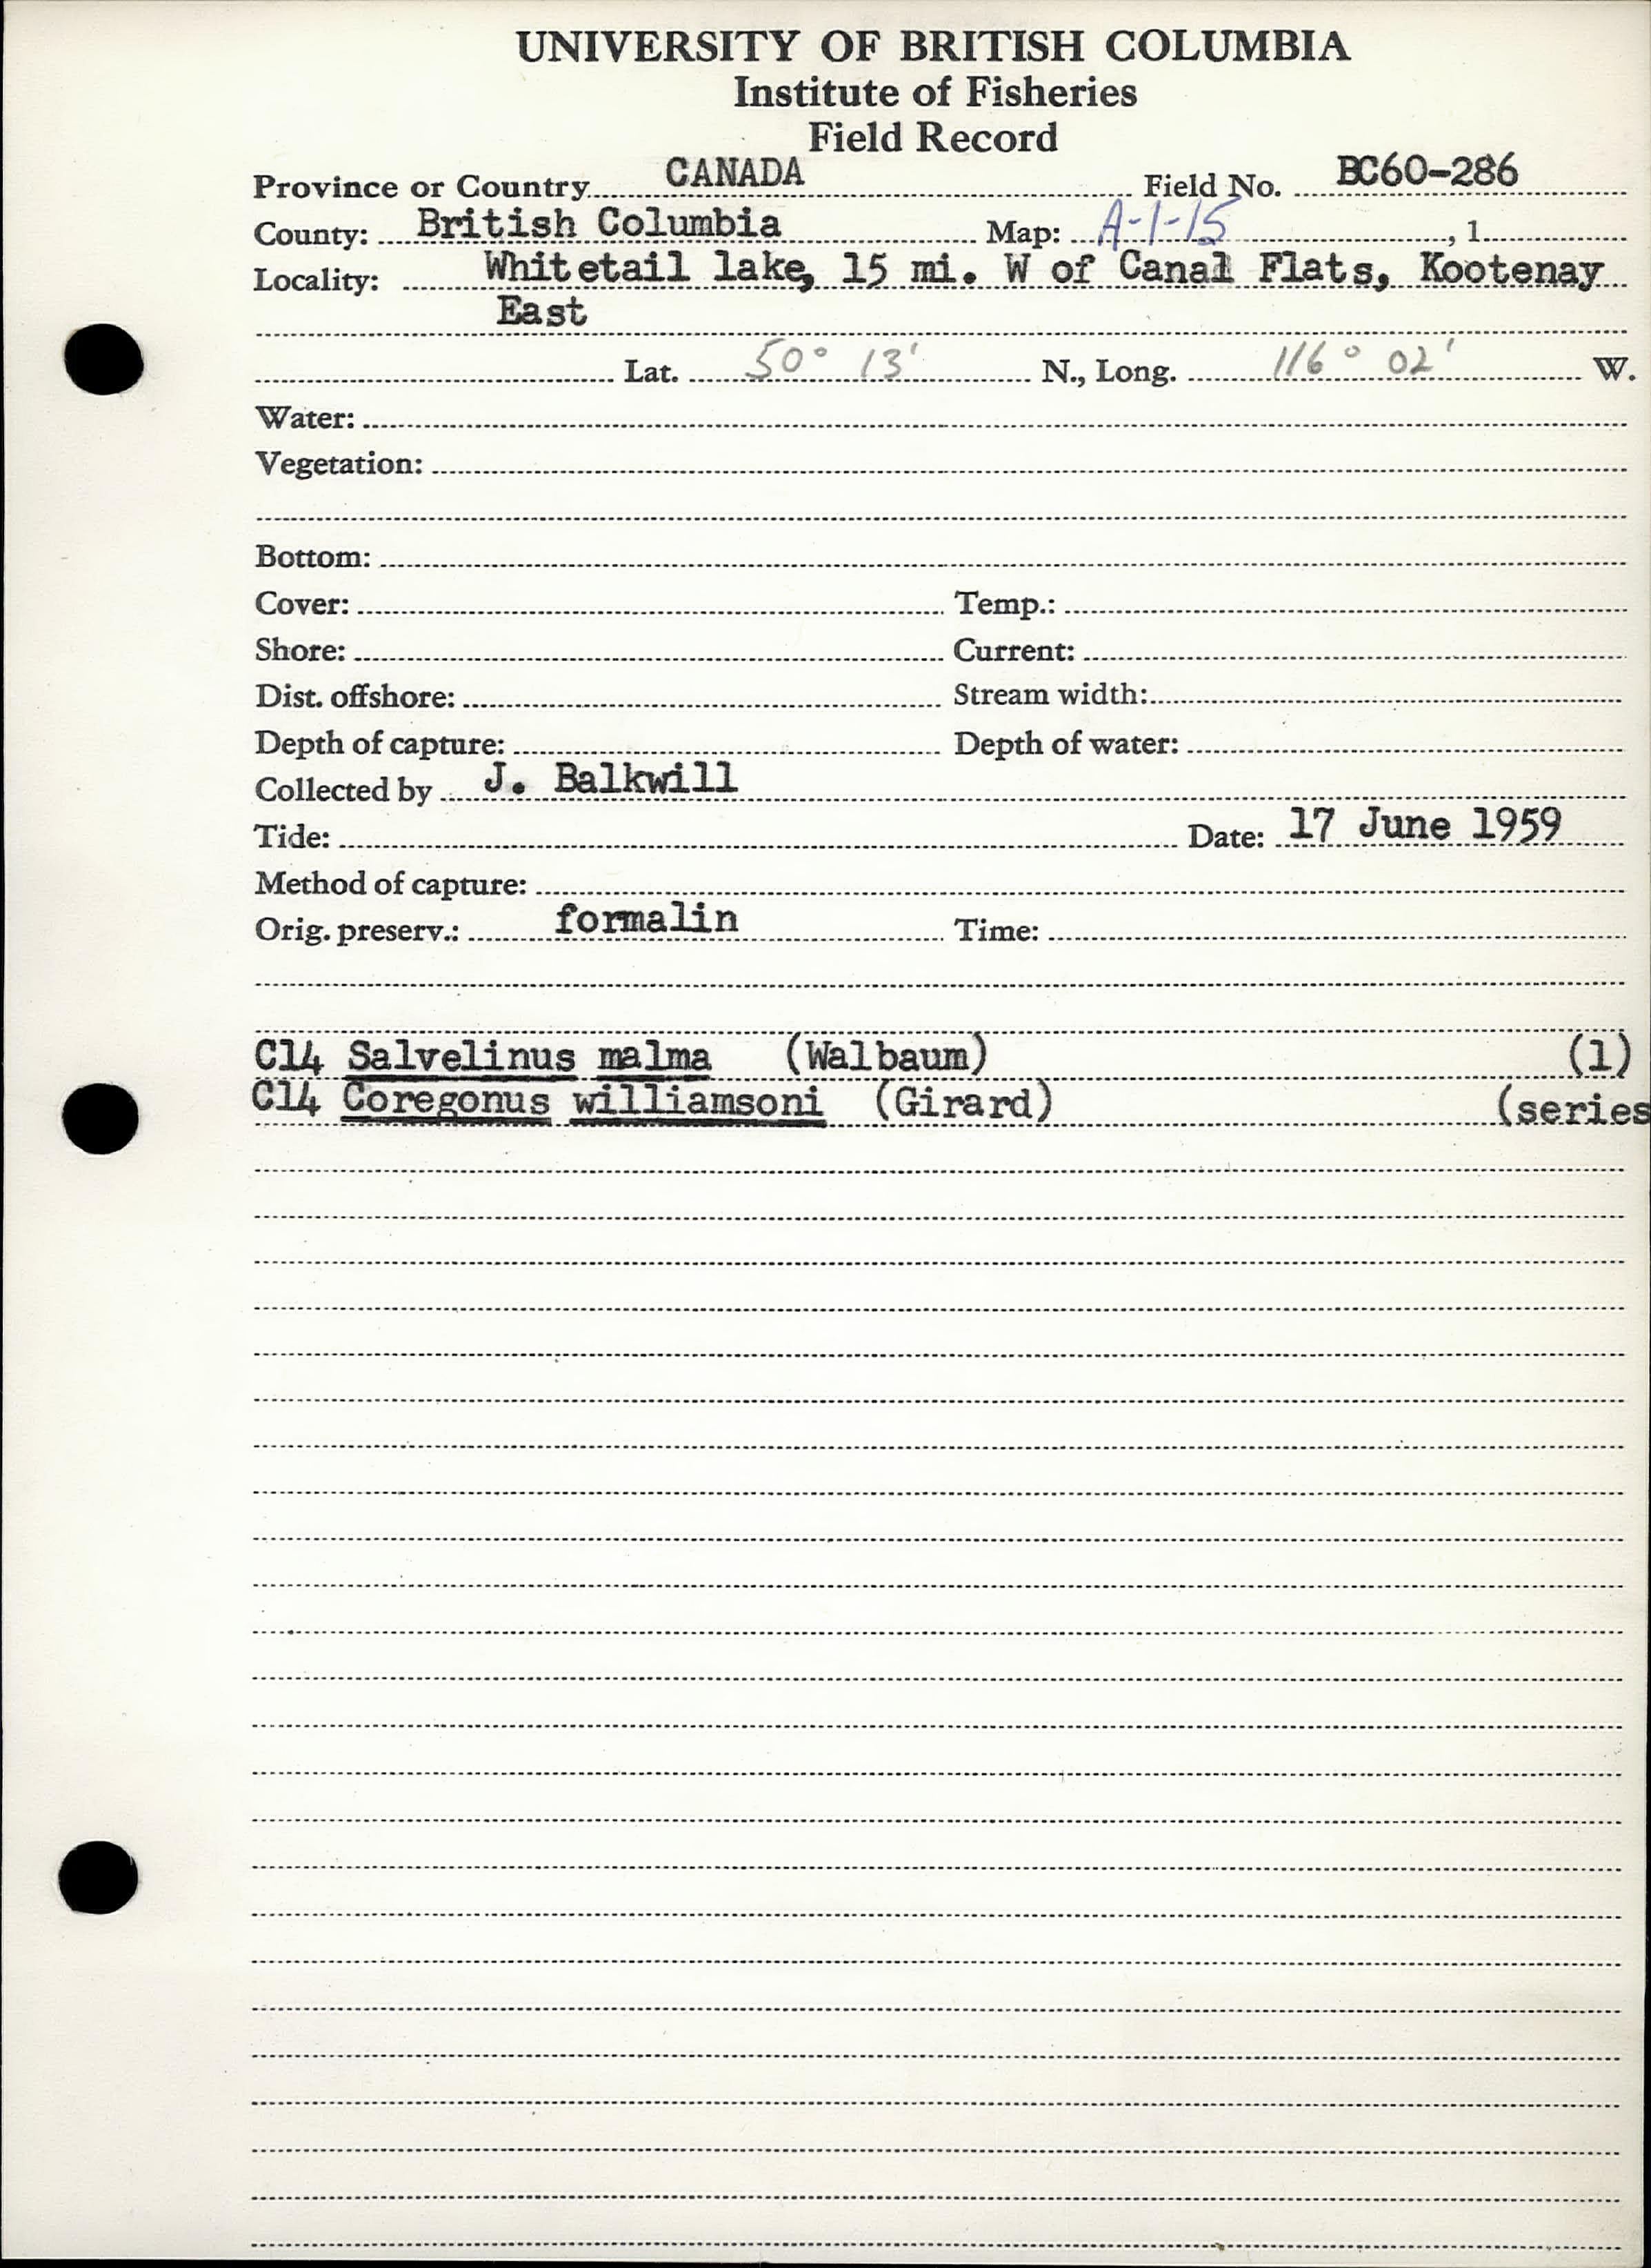 UNIVERSITY OF BRITISH COLUMBIA
Institute of Fisheries
Field Record
Province or Country CANADA Field No. BC60-286
County: British Columbia Map: A-1-15, 1
Locality: Whitetail lake, 15 mi. W of Canal Flats, Kootenay
East
Lat. 50° 13' N., Long. 116° 02' W.
Water:
Vegetation:
Bottom:
Cover: Temp.:
Shore: Current:
Dist. offshore: Stream width:
Depth of capture: Depth of water:
Collected by J. Balkwill
Tide: Date: 17 June 1959
Method of capture:
Orig. preserv.: formalin Time:
C14 Salvelinus malma (Walbaum) (1)
C14 Coregonus williamsoni (Girard) (series